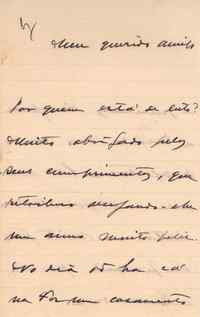 Meu querido amigo
Por quem está de luto?
Muito obrigado pelos
seus cumprimentos, que
retribuo desejando-lhe
um anno muito feliz.
No dia 15 ha cá
na um casamento